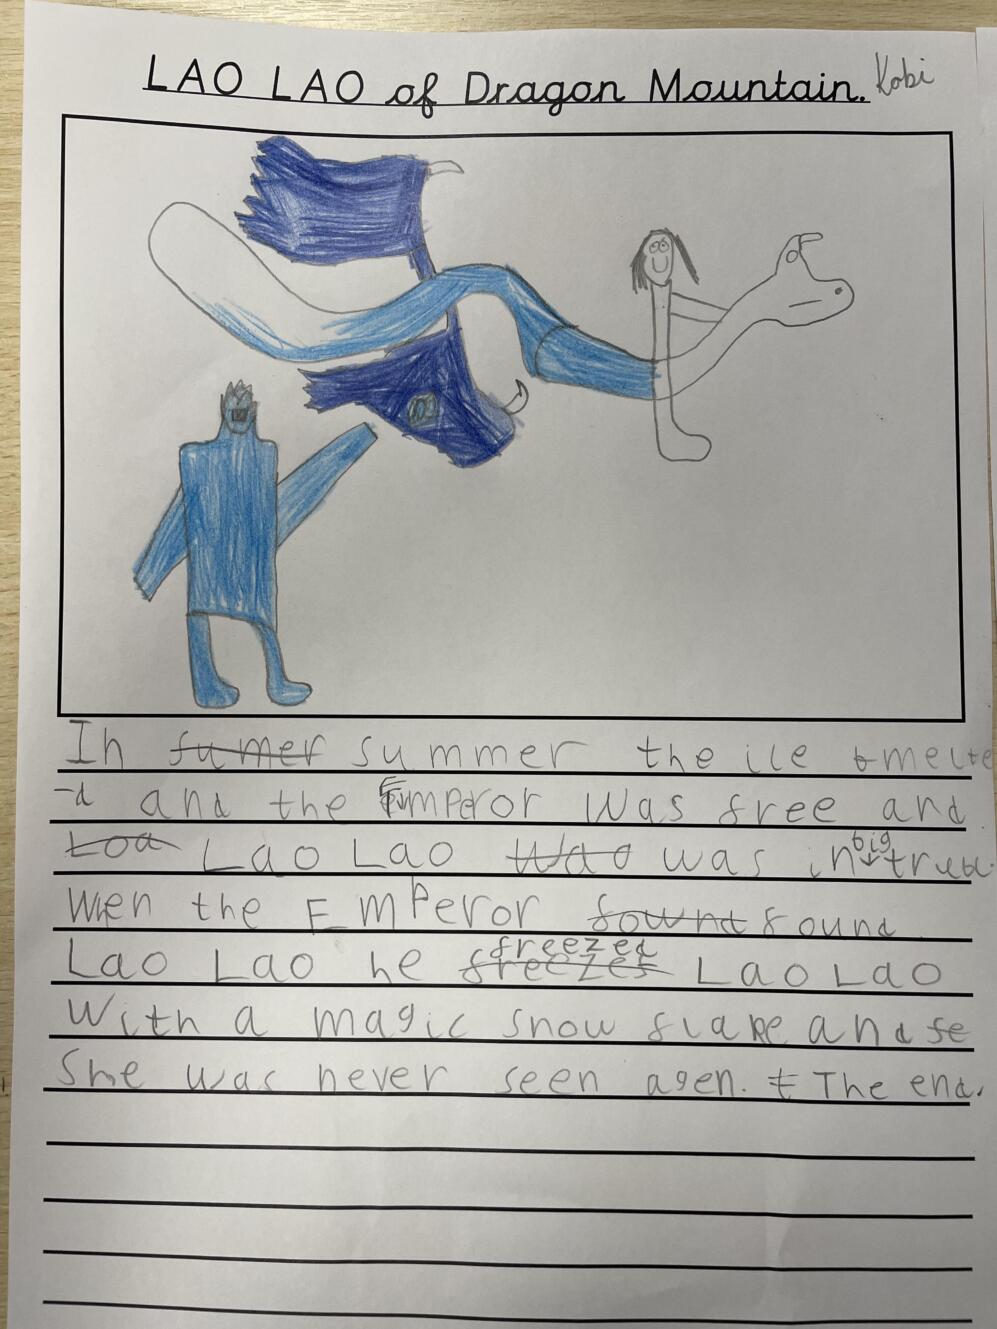 LAO LAO of Dragon Mountain. Kobi
In fumer summer the ice t melte
-d and the Emperor was free and
Loa Lao Lao Wao was in big trubl.
When the Emperor fownt found
Lao Lao he freezes freezed Lao Lao
With a magic snow flake and se
She was never seen agen. t The end.